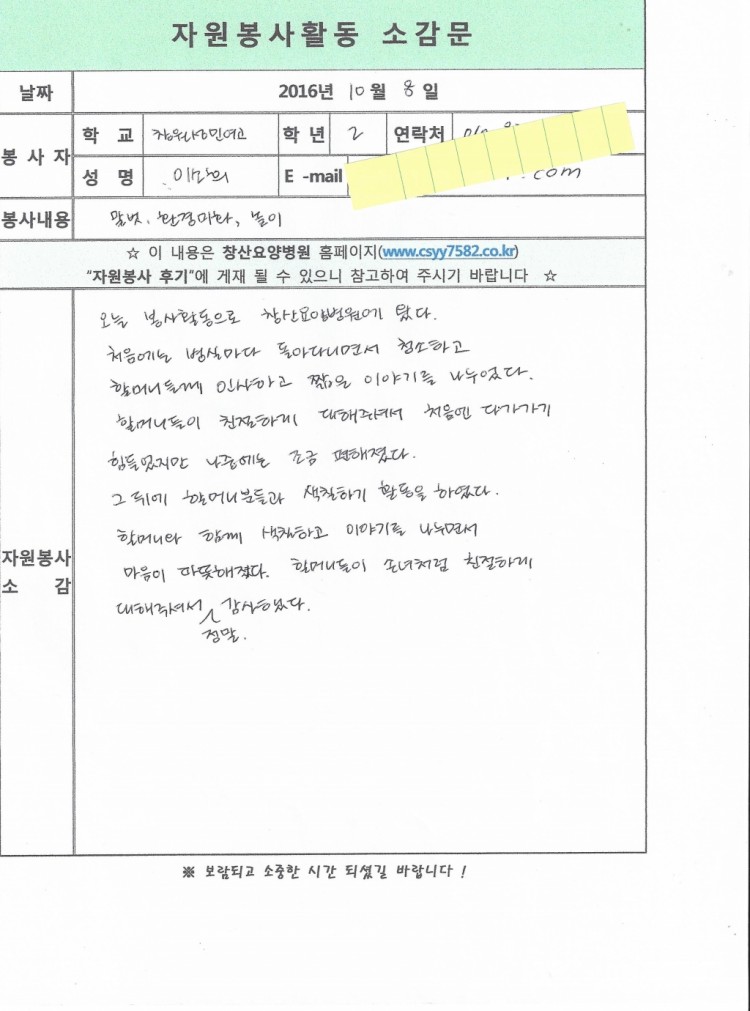 자원봉사활동 소감문
날짜 2016년 10월 8일
봉사자
학 교 창원사파민여고 학 년 2 연락처
성 명 E -mail .com
봉사내용 말벗, 환경미화, 놀이
☆ 이 내용은 창산요양병원 홈페이지(www.csyy7582.co.kr)
"자원봉사 후기"에 게재 될 수 있으니 참고하여 주시기 바랍니다 ☆
자원봉사
소 감
오늘 봉사활동으로 창산요양병원에 왔다.
처음에는 병실마다 돌아다니면서 청소하고
할머니들께 인사하고 짧은 이야기를 나누었다.
할머니들이 친절하게 대해주셔서 처음엔 다가가기
힘들었지만 나중에는 조금 편해졌다.
그 뒤에 할머니분들과 색칠하기 활동을 하였다.
할머니와 함께 색칠하고 이야기를 나누면서
마음이 따뜻해졌다. 할머니들이 손녀처럼 친절하게
대해주셔서 정말 감사했다.
※ 보람되고 소중한 시간 되셨길 바랍니다 !